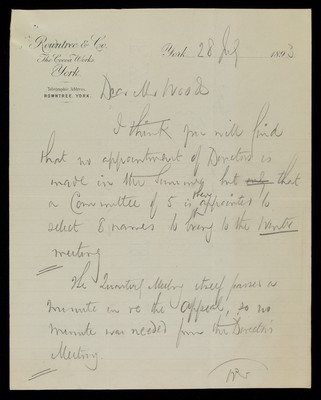 Rowntree & Co.
The Cocoa Works
York
Telegraphic Address,
ROWNTREE, YORK.
York 28 July 1893
Dear Mr Wood
I think you will find
that no appointment of Directors is
made in the Summary but only that
a Committee of 5 is there appointed to
select 8 names to bring to the
meeting
The Quarterly Meeting itself passes a
minute in re the Appeal, so no
minute was needed from the Directors
Meeting.